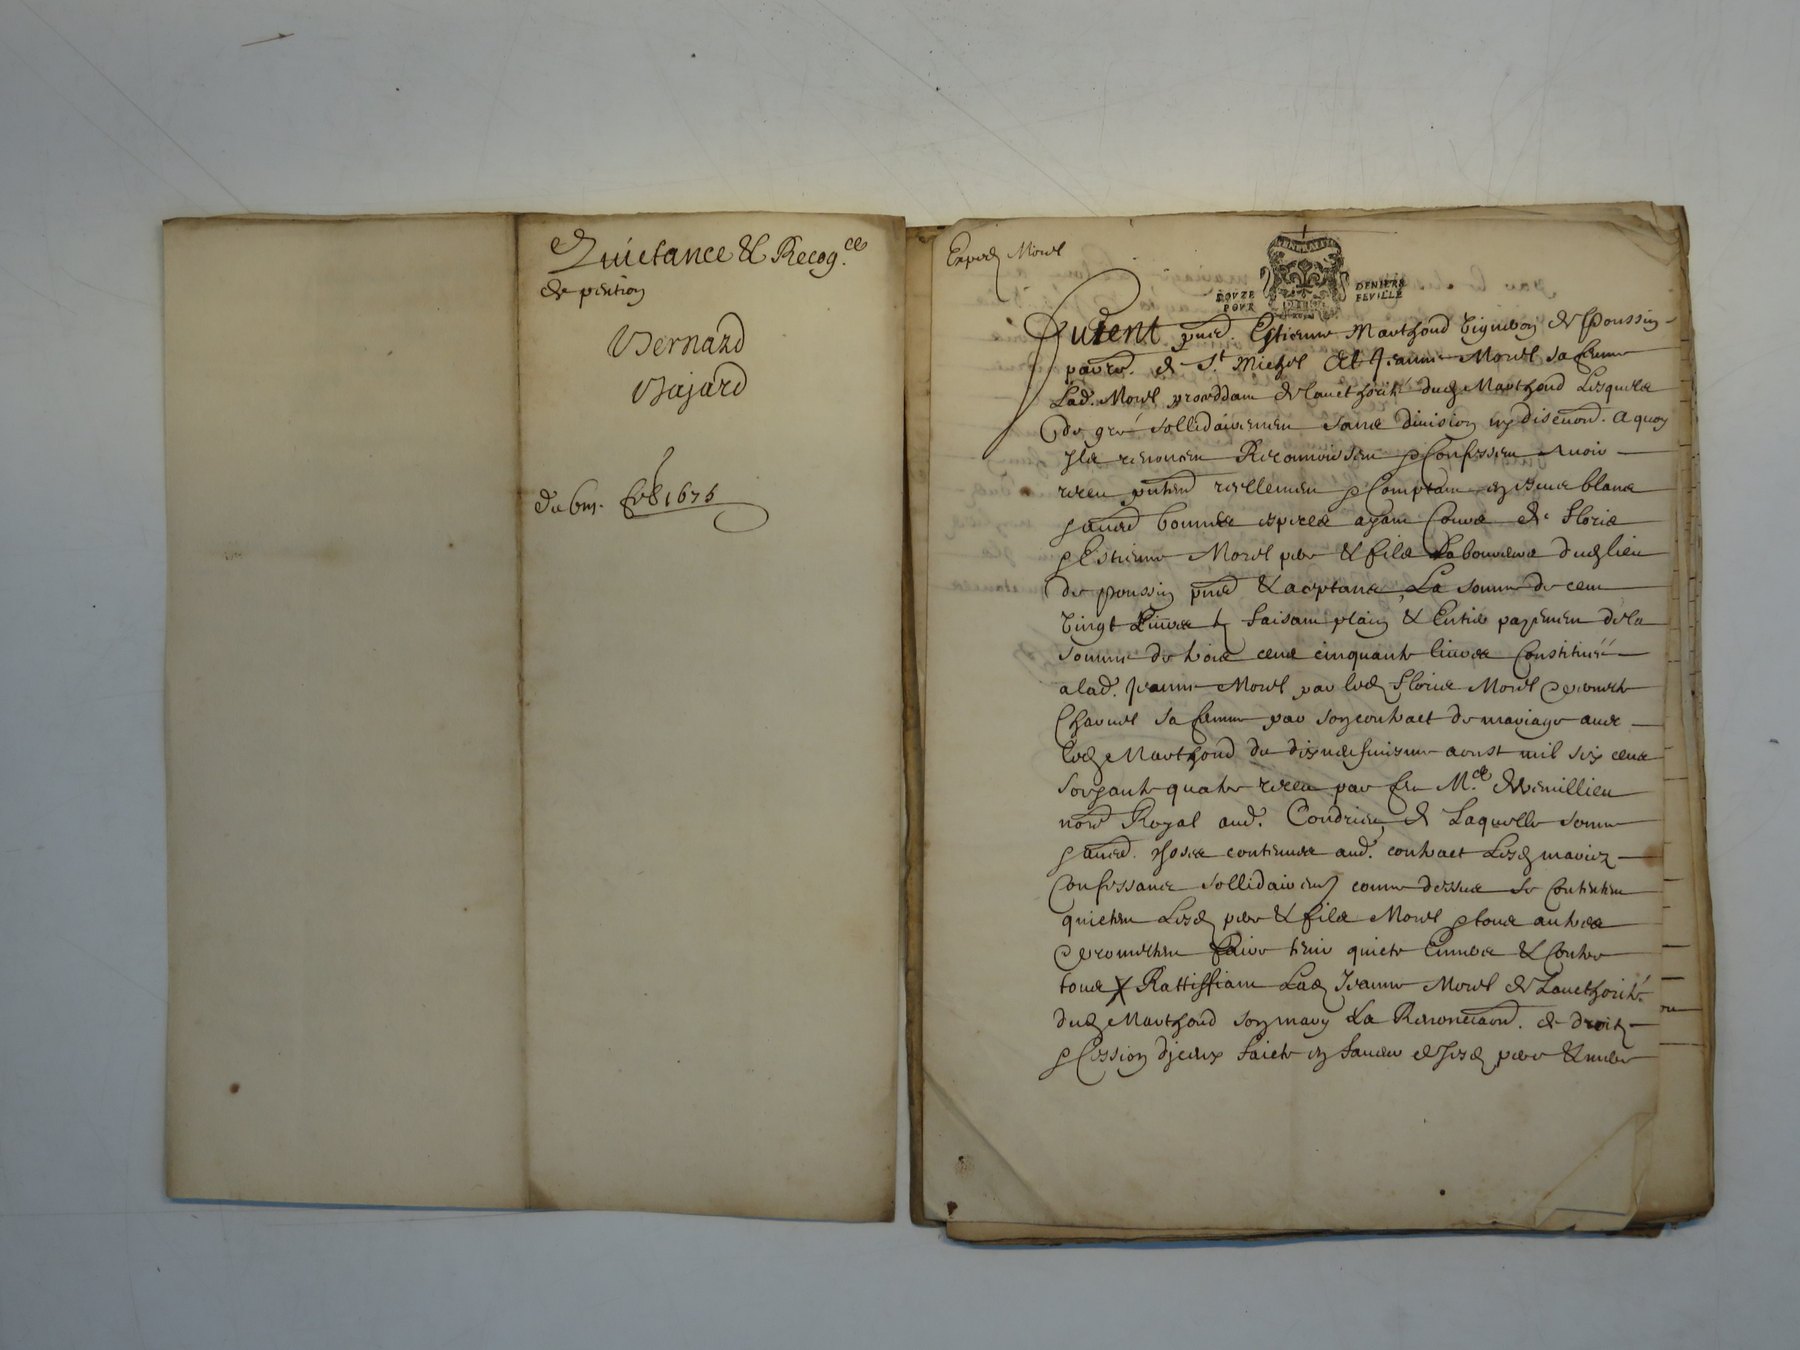 Quictance & Recog.ce
de pention
Bernard
Bajard
du 6me. feb 1675
Exped Morel
GENERALITE
DOVZE DENIERS
POVR FEVILLE
Furent pntz. Estienne Marthoud vigneron de Poussin
parr. de St. Michel Et Jeanne Morel sa femme
Lad. Morel proceddant de laucthorité dud Marthoud Lesquels
de gré sollidairement sans division ny discution. a quoy
Ils renoncent Recounoissent & Confessent avoir
receu pntem reellement & Comptant en Beue blanc
& aues bonnes especes ayans Cours de Floris
& Estienne Morel pere & fils Laboureurs dud lieu
de poussin pnts & aceptans, La somme de cent
vingt Livres faisant plain & Entier payement de la
somme de trois cens cinquante livres Constituéé
a lad. Jeanne Morel par led Floris Morel & pernete
Charvet sa femme par son contract de mariage avec
led Marthoud du dixneufviesme aoust mil six cens
soixante quatre receu par feu Me. Devermillieu
nore Royal aud. Condrieu, de Laquelle somme
& autres choses contenues aud. contract Lesd mariez
Confessans sollidairem comme dessus se Contentent
quictent Lesd pere & fils Morel & tous autres
& promettent faire tenir quicte Envers & Contre
tous X Rattiffiant Lad Jeanne Morel de Lauctorité
dud Marthoud son mary La Renonciaon. de droitz
& Cession d'jceux faicte en faveur desd pere & mere